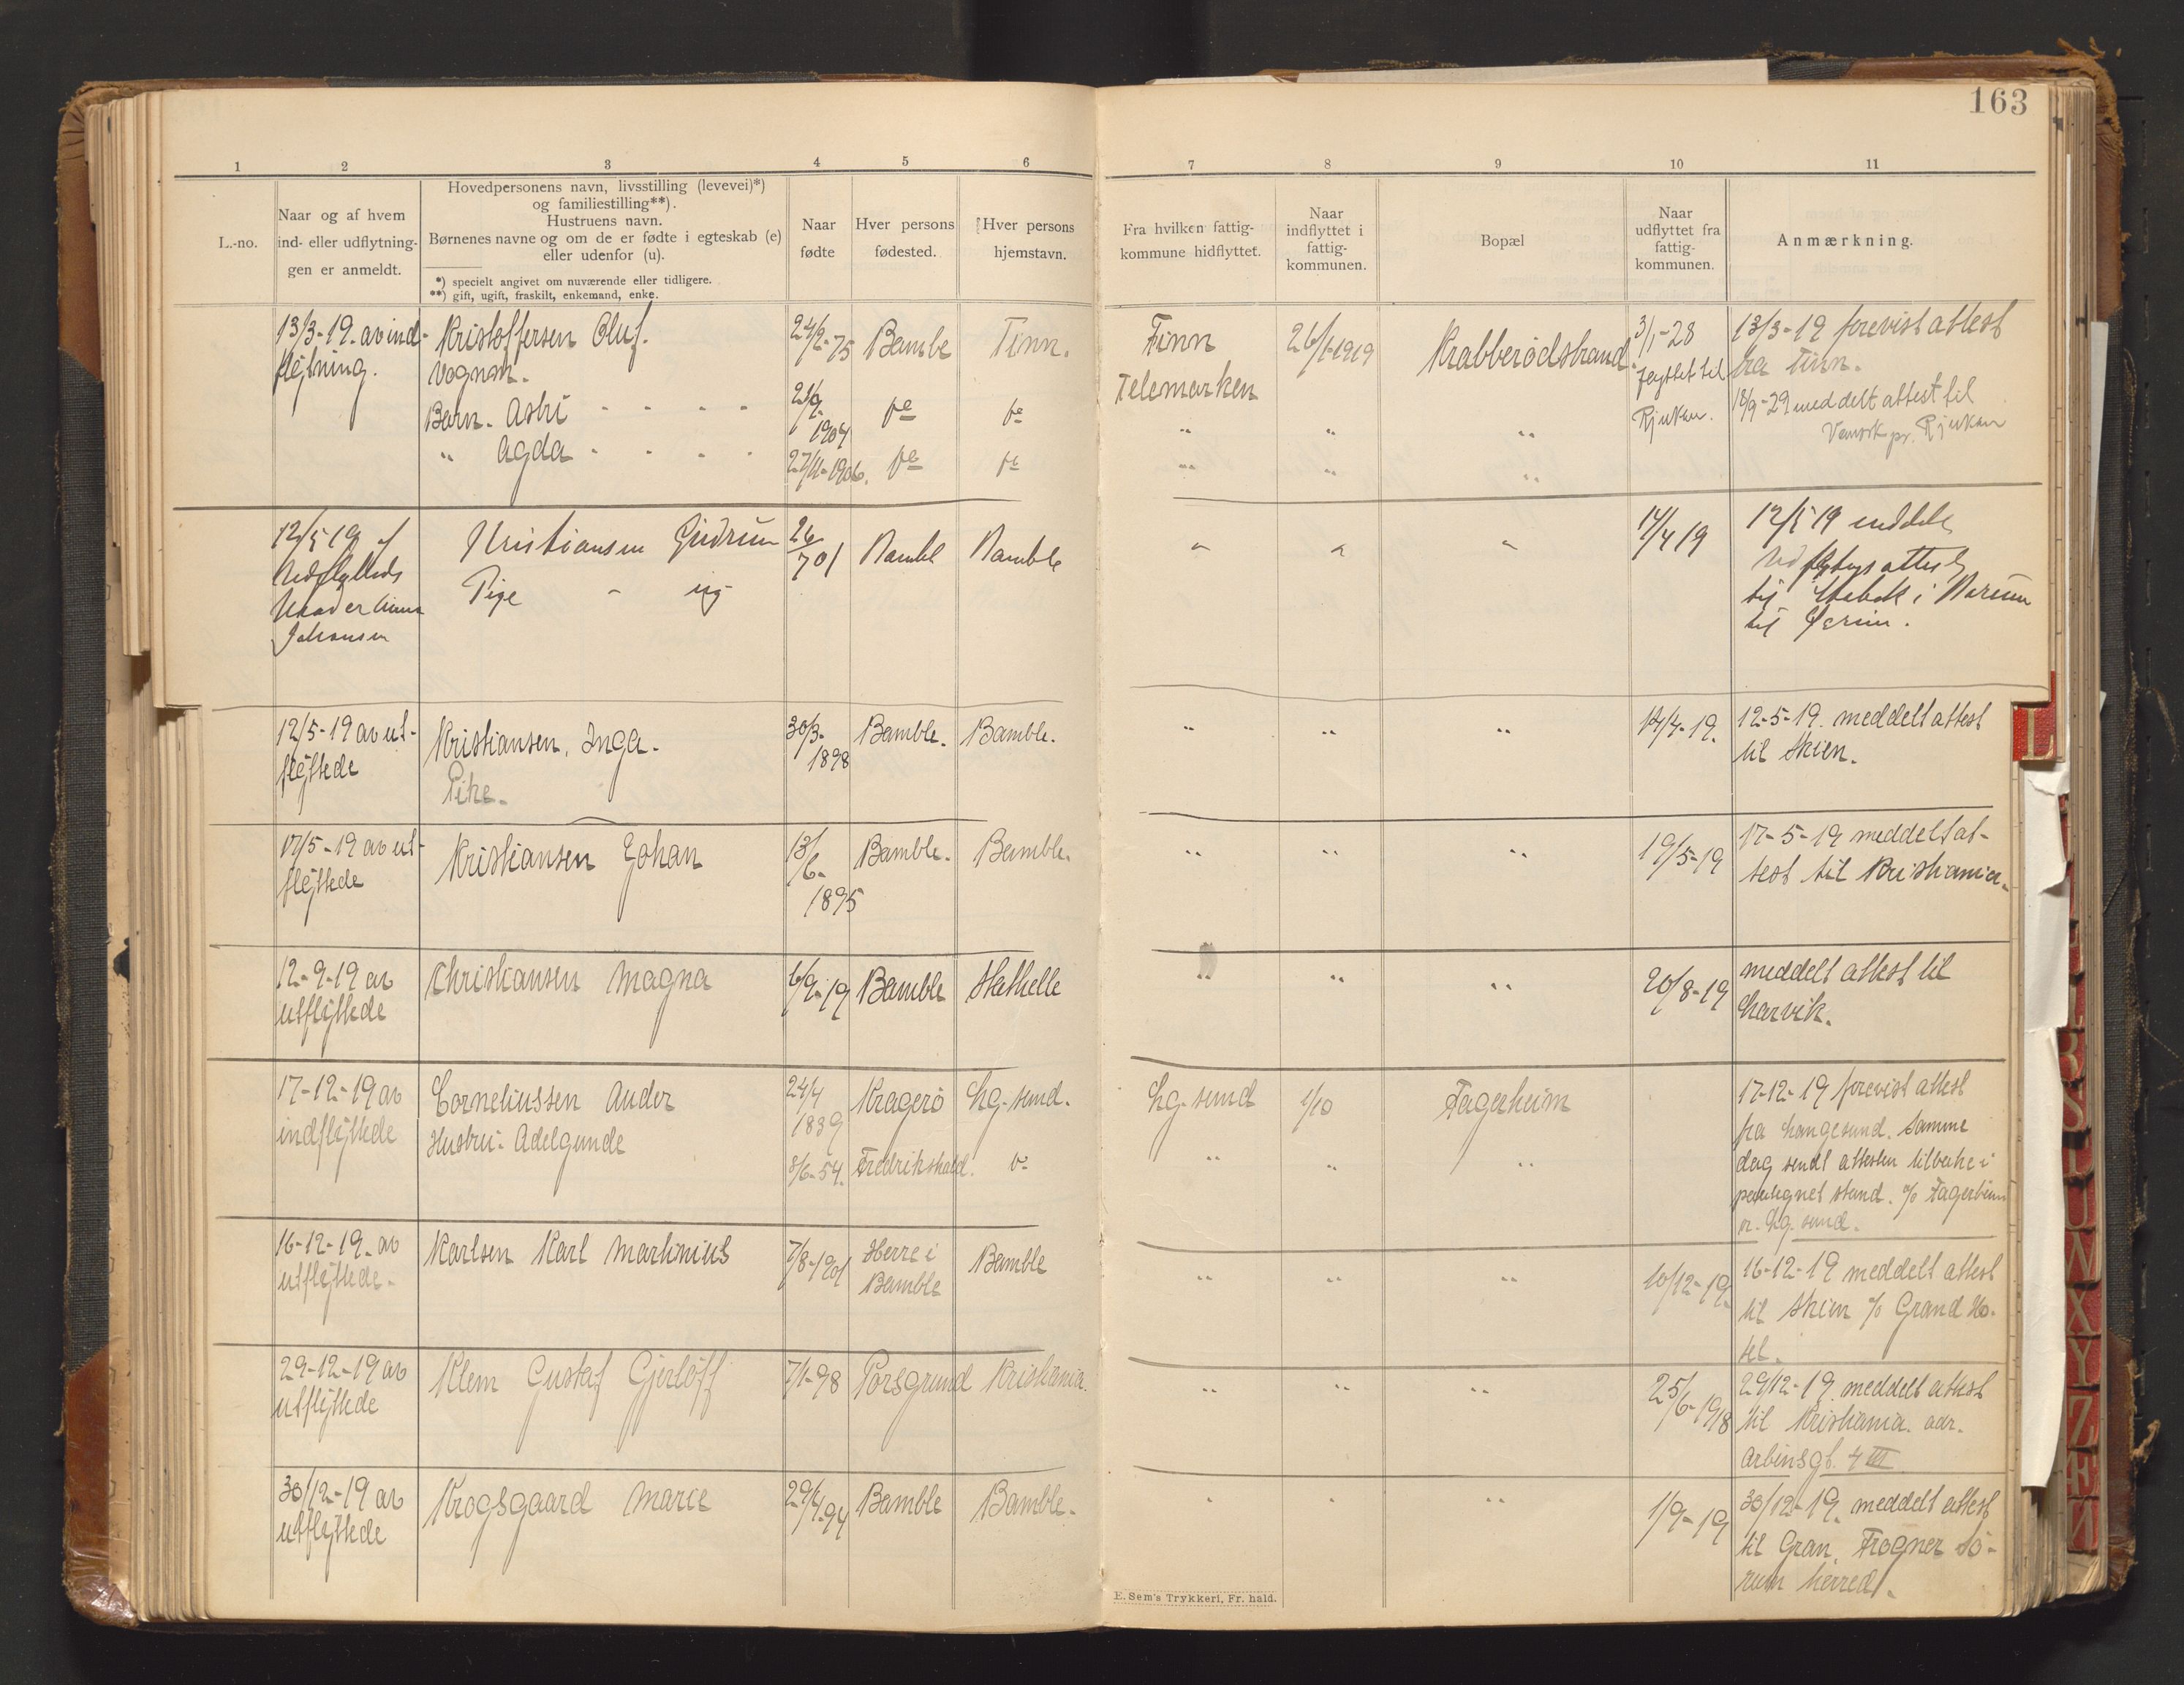 163
1 2 3 4 5 6 7 8 9 10 11
L.-no.
Naar og af hvem
ind- eller udflytnin-
gen er anmeldt.
Hovedpersonens navn, livsstilling (levevei)*)
og familiestilling**).
Hustruens navn.
Børnenes navne og om de er fødte i egteskab (e)
eller udenfor (u).
*) specielt angivet om nuværende eller tidligere.
**) gift, ugift, fraskilt, enkemand, enke.
Naar
fødte
Hver persons
fødested.
Hver persons
hjemstavn.
Fra hvilken fattig-
kommune hidflyttet.
Naar
indflyttet i
fattig-
kommunen.
Bopæl
Naar
udflyttet fra
fattig-
kommunen.
Anmærkning.
13/3-19. av ind-
flytning.
Kristoffersen Oluf.
Vognm.
Barn. Astri - - - -
" Agda - - - -
24/2-75
21/9-
1904
27/11-1906.
Bamble
do
do
Tinn.
do
do
Tinn
Telemarken
"
"
26/1-1919
"
"
Krabberødstrand
"
"
3/1-28
flyttet til
Rjukan.
13/3-19 forevist attest
fra Tinn.
18/9-29 meddelt attest til
Vemork pr. Rjukan
12/5 19 af
Udflyttede
Johansen
Kristiansen Gudrun
Pige - ug
26
/7 01
Bamble
Bamble
" " "
14/4 19
12/5 19 meddelt
Udflytngs attest
til Stabek i Bærum
12/5-19 av ut-
flyttede
Kristiansen, Inga.
Pike.
30/3-
1898
Bamble.
Bamble.
" " "
14/4-19.
12-5-19. meddelt attest
til Skien.
17/5-19 av ut-
flyttede
Kristiansen Johan
13/
6-
1895
Bamble.
Bamble.
" " "
19/5-19
17-5-19 meddelt at-
test til Kristiania.
12-9-19 av
utflyttede
Christiansen Magna
6/9-19
Bamble
Stathelle
" " "
20/8-19
meddelt attest til
Larvik.
17-12-19 av
indflyttede
Corneliussen Ander
Hustru: Adelgunde
24/4
1839
8/6-54.
Kragerø
Fredrikshald.
Lg.-sund.
do
Lg.-sund
"
1/10
"
Fagerheim
"
17-12-19 forevist attest
fra Langesund. Samme
dag sendt attesten tilbake i
paategnet stand. % Fagerheim
pr. Lg. sund.
16-12-19. av
utflyttede.
Karlsen Karl Martinius
7/8-1901
Herre i
Bamble
Bamble
" " "
10/12-19.
16-12-19 meddelt attest
til Skien % Grand Ho-
tel.
29-12-19 av
utflyttede
Klem Gustaf Gjerløff
7/1-98
Porsgrund
Kristiania.
" " "
25/
6-1918
29/12-19. meddelt attest
til Kristiania. adr.
Arbinsgt. 4 III
30/12-19 av
utflyttede
Krogsgaard Marie
29/4-94
Bamble
Bamble.
" " "
1/9-19
30/12-19. meddelt attest
til Gran, Frogner Sø-
rum herred.
E. Sem's Trykkeri, Fr. hald.
L